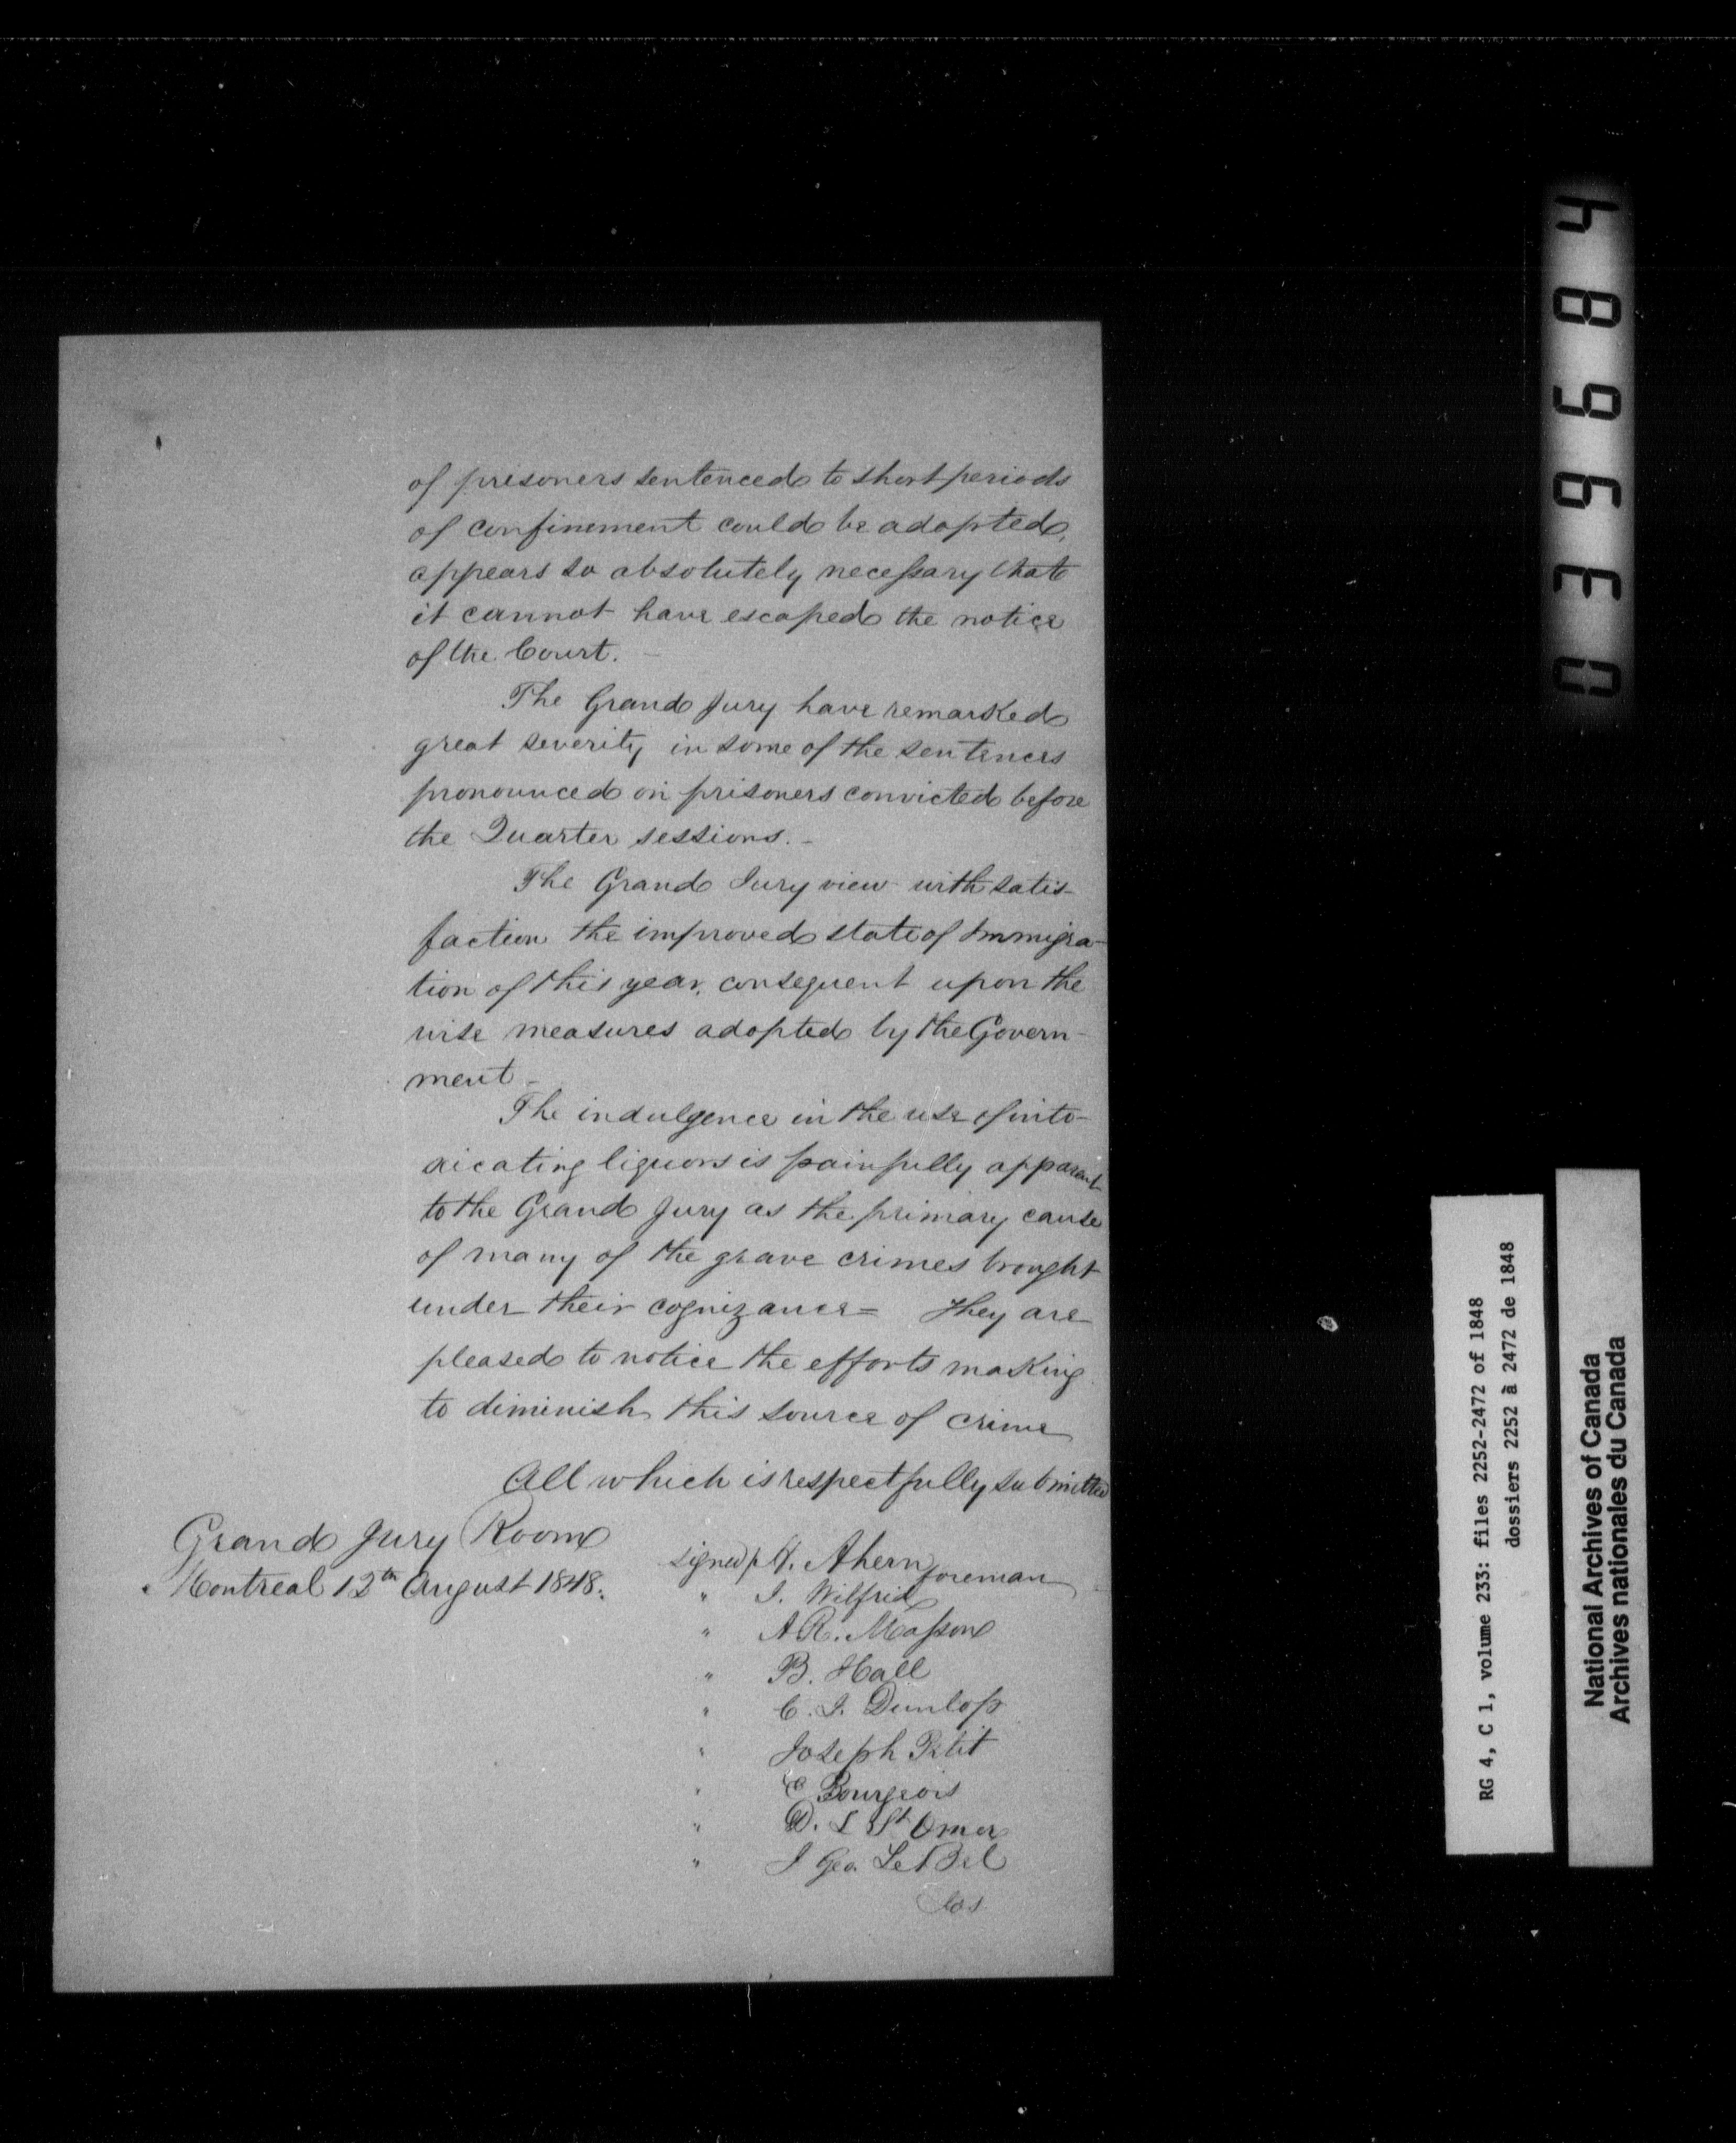 of prisoners sentenced to short periods
of confinement could be adopted,
appears so absolutely necessary that
it cannot have escaped the notice
of the Court. —
The Grand Jury have remarked
great severity in some of the sentences
pronounced on prisoners convicted before
the Quarter sessions. -
The Grand Jury view with satis-
faction the improved state of Immigra-
tion of this year, consequent upon the
wise measures adopted by the Govern-
ment -
The indulgence in the use of into-
xicating liquors is painfully apparent
to the Grand Jury as the primary cause
of many of the grave crimes brought
under their cognizance = They are
pleased to notice the efforts making
to diminish this source of crime
All which is respectfully submitted
Grand Jury Room
Montreal 12th August 1848.
signed Ahern foreman
" J. Wilfrid
" A R. Masson
" B. Hall
" C. J. Dunlop
" Joseph Petit
" E Bourgeois
" D. L St Omer
" J Geo. LeBel
039684
RG 4, C 1, volume 233: files 2252-2472 of 1848
dossiers 2252 à 2472 de 1848
National Archives of Canada
Archives nationales du Canada